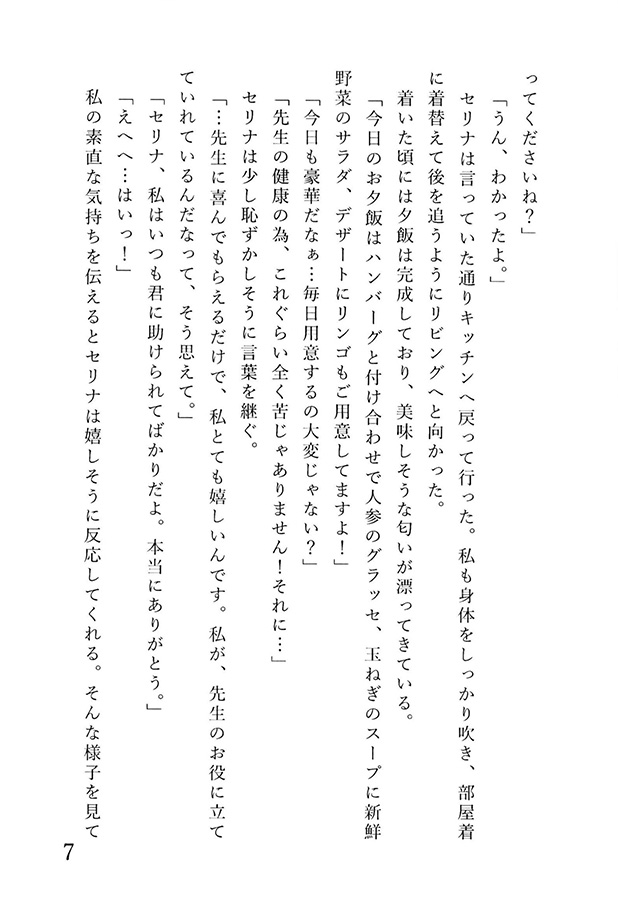 ってくださいね？」
「うん、わかったよ。」
セリナは言っていた通りキッチンへ戻って行った。私も身体をしっかり吹き、部屋着
に着替えて後を追うようにリビングへと向かった。
着いた頃には夕飯は完成しており、美味しそうな匂いが漂ってきている。
「今日のお夕飯はハンバーグと付け合わせで人参のグラッセ、玉ねぎのスープに新鮮
野菜のサラダ、デザートにリンゴもご用意してますよ！」
「今日も豪華だなぁ…毎日用意するの大変じゃない？」
「先生の健康の為、これぐらい全く苦じゃありません！それに…」
セリナは少し恥ずかしそうに言葉を継ぐ。
「…先生に喜んでもらえるだけで、私とても嬉しいんです。私が、先生のお役に立て
ていれているんだなって、そう思えて。」
「セリナ、私はいつも君に助けられてばかりだよ。本当にありがとう。」
「えへへ…はいっ！」
私の素直な気持ちを伝えるとセリナは嬉しそうに反応してくれる。そんな様子を見て
7